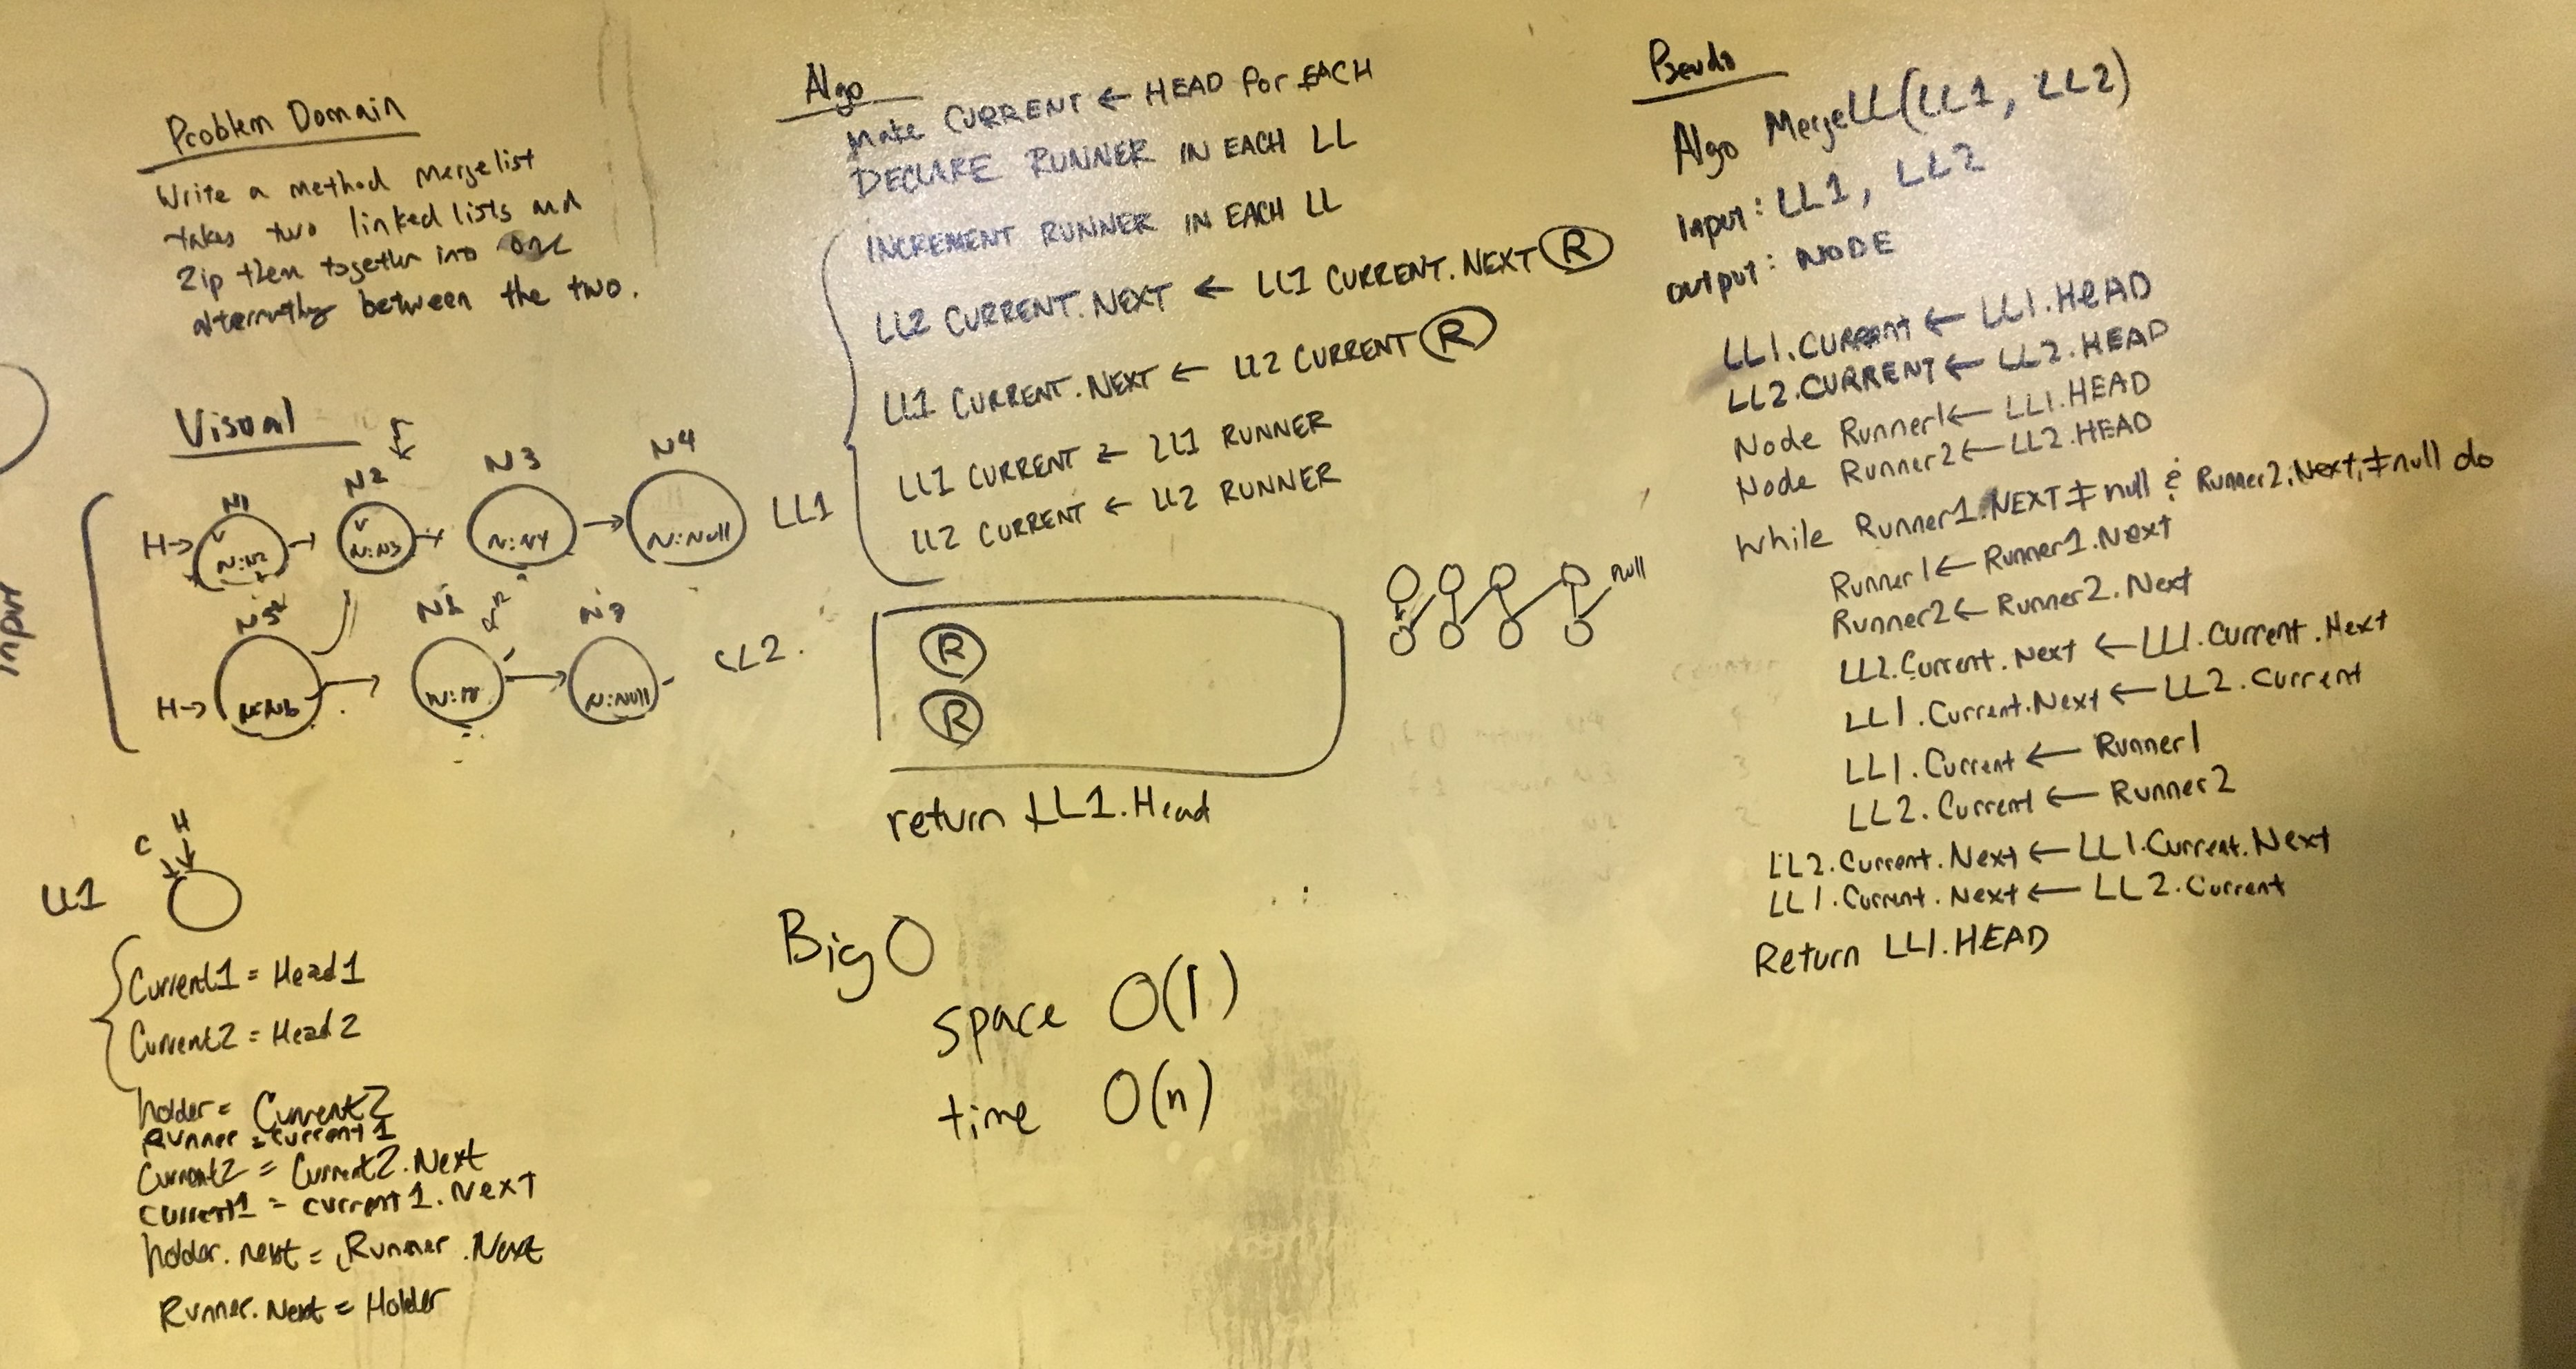 Problem Domain
Write a method mergelist
takes two linked lists and
Zip them together into one
alternatly between the two.
Visual
r
N1 N2 N3 N4
H→ N:N2 → N:N3 → N:N4 → N:Null LL1
input
N5 N6 N7
H→ N:N6 → → N:Null LL2.
C H
LL1
Current1 = Head1
Current2 = Head2
holder = Current2
Runner = current1
Current2 = Current2.Next
current1 = current1.Next
holder.next = Runner.Next
Runner.Next = Holder
Algo
make CURRENT ← HEAD for EACH
DECLARE RUNNER IN EACH LL
INCREMENT RUNNER IN EACH LL
LL2 CURRENT.NEXT ← LL1 CURRENT.NEXT R
LL1 CURRENT.NEXT ← LL2 CURRENT R
LL1 CURRENT ← LL1 RUNNER
LL2 CURRENT ← LL2 RUNNER
null
R
R
return LL1.Head
Big O
space O(1)
time O(n)
Pseudo
Algo MergeLL(LL1, LL2)
Input: LL1, LL2
output: NODE
LL1.CURRent ← LL1.HEAD
LL2.CURRENT ← LL2.HEAD
Node Runner1 ← LL1.HEAD
Node Runner2 ← LL2.HEAD
While Runner1.NEXT ≠ null & Runner2.Next ≠ null do
Runner1 ← Runner1.Next
Runner2 ← Runner2.Next
LL2.Current.Next ← LL1.Current.Next
LL1.Current.Next ← LL2.Current
LL1.Current ← Runner1
LL2.Current ← Runner2
LL2.Current.Next ← LL1.Current.Next
LL1.Current.Next ← LL2.Current
Return LL1.HEAD